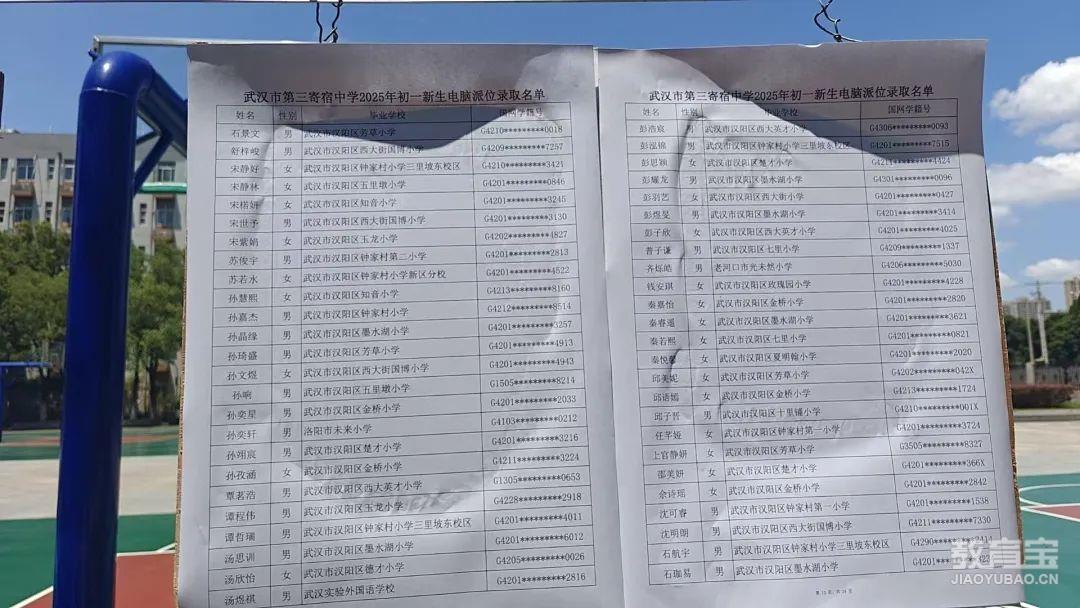 武汉市第三寄宿中学2025年初一新生电脑派位录取名单
姓名 性别 毕业学校 国网学籍号
石景文 男 武汉市汉阳区芳草小学 G4210*********0018
舒梓峻 男 武汉市汉阳区西大街国博小学 G4209*********7257
宋静好 女 武汉市汉阳区钟家村小学三里坡东校区 G4210*********3421
宋静林 女 武汉市汉阳区五里墩小学 G4201*********0846
宋楉妍 女 武汉市汉阳区知音小学 G4201*********3245
宋世予 男 武汉市汉阳区西大街国博小学 G4201*********3130
宋紫娟 女 武汉市汉阳区玉龙小学 G4202*********4827
苏俊宇 男 武汉市汉阳区钟家村第二小学 G4201*********2813
苏若水 女 武汉市汉阳区钟家村小学新区分校 G4201*********4522
孙慧熙 女 武汉市汉阳区知音小学 G4213*********8160
孙嘉杰 男 武汉市汉阳区钟家村小学 G4212*********8514
孙晶缘 男 武汉市汉阳区墨水湖小学 G4201*********3257
孙琦盛 男 武汉市汉阳区芳草小学 G4201*********4913
孙文煜 女 武汉市汉阳区西大街国博小学 G4201*********4943
孙响 男 武汉市汉阳区五里墩小学 G1505*********8214
孙奕星 男 武汉市汉阳区金桥小学 G4201*********2033
孙奕轩 男 洛阳市未来小学 G4103*********0212
孙翊宸 男 武汉市汉阳区楚才小学 G4201*********3216
孙孜涵 女 武汉市汉阳区金桥小学 G4211*********3224
覃茗浩 男 武汉市汉阳区西大英才小学 G1305*********0653
谭程伟 男 武汉市汉阳区玉龙小学 G4228*********2918
谭哲瑞 男 武汉市汉阳区钟家村小学三里坡东校区 G4201*********4011
汤思训 男 武汉市汉阳区墨水湖小学 G4201*********6012
汤欣怡 女 武汉市汉阳区德才小学 G4205*********0026
汤煜祺 男 武汉实验外国语学校 G4201*********2816
武汉市第三寄宿中学2025年初一新生电脑派位录取名单
姓名 性别 毕业学校 国网学籍号
彭浩宸 男 武汉市汉阳区西大英才小学 G4306*********0093
彭泓锦 男 武汉市汉阳区钟家村小学三里坡东校区 G4201*********7515
彭思颖 女 武汉市汉阳区楚才小学 G4211*********4424
彭耀龙 男 武汉市汉阳区墨水湖小学 G4301*********0096
彭羽艺 女 武汉市汉阳区西大街小学 G4201*********0427
彭煜旻 男 武汉市汉阳区墨水湖小学 G4201*********3414
彭子欣 女 武汉市汉阳区西大英才小学 G4201*********4025
普子谦 男 武汉市汉阳区七里小学 G4209*********1337
齐烁皓 男 老河口市光未然小学 G4206*********5030
钱安琪 女 武汉市汉阳区玫瑰园小学 G4201*********4228
秦嘉怡 女 武汉市汉阳区金桥小学 G4201*********2820
秦睿遥 女 武汉市汉阳区墨水湖小学 G4201*********3621
秦若熙 女 武汉市汉阳区七里小学 G4201*********0821
秦悦馨 女 武汉市汉阳区夏明翰小学 G4201*********2020
邱美妮 女 武汉市汉阳区芳草小学 G4202*********042X
邱语嫣 女 武汉市汉阳区金桥小学 G4213*********1724
邱子晋 男 武汉市汉阳区十里铺小学 G4210*********001X
任芊娅 女 武汉市汉阳区钟家村第一小学 G4201*********3724
上官静妍 女 武汉市汉阳区芳草小学 G3505*********8327
邵美妍 女 武汉市汉阳区楚才小学 G4201*********366X
佘诗瑶 女 武汉市汉阳区金桥小学 G4201*********2842
沈可睿 男 武汉市汉阳区钟家村第一小学 G4201*********1538
沈明朗 男 武汉市汉阳区西大街国博小学 G4211*********7330
石航宇 男 武汉市汉阳区钟家村小学三里坡东校区 G4290*********2414
石珈易 男 武汉市汉阳区墨水湖小学 G4201*********
教育宝
JIAOYUBAO.CN